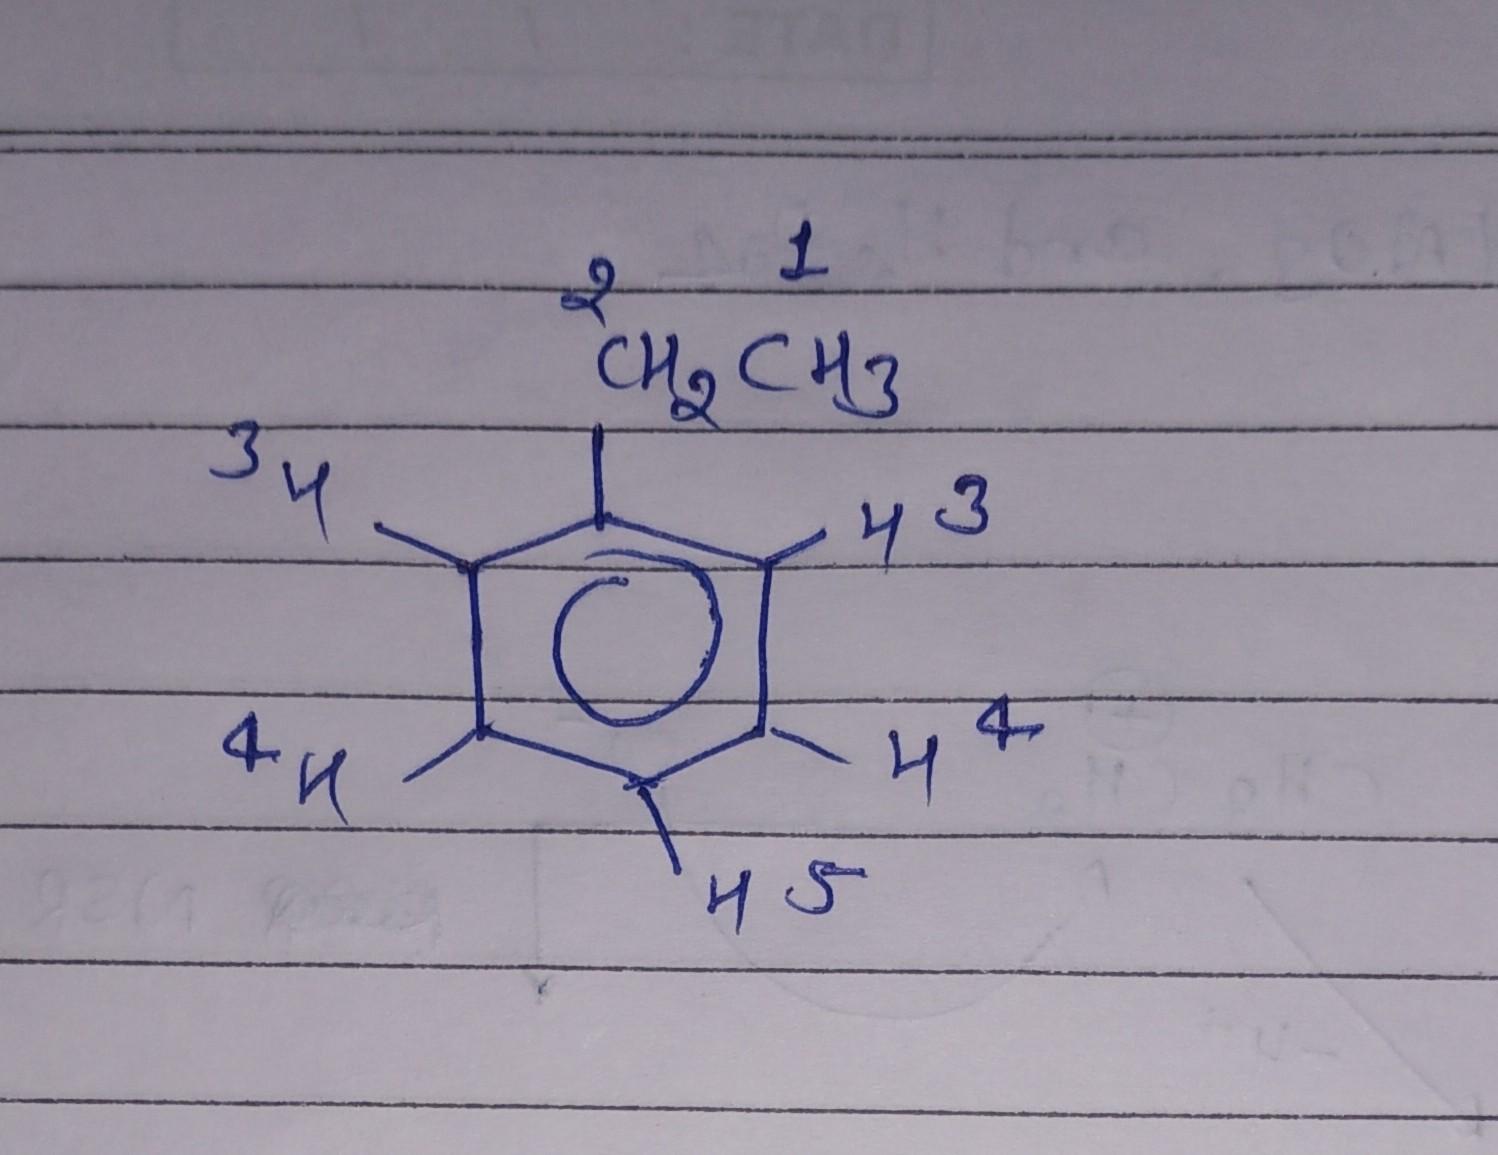 2 1
CH2 CH3
3 H H 3
4 H H 4
H 5